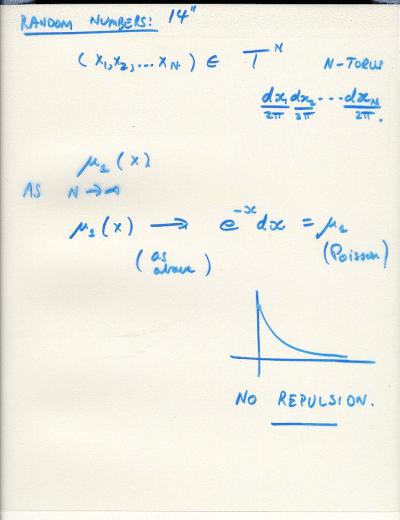 RANDOM NUMBERS: 14"
(x₁, x₂, ... x_N) ∈ T^N N-TORUS
dx₁/2π dx₂/2π ... dx_N/2π.
μ₁(x)
AS N → ∞
μ₁(x) → e^{-x}dx = μ₁
(as above) (Poisson)
NO REPULSION.